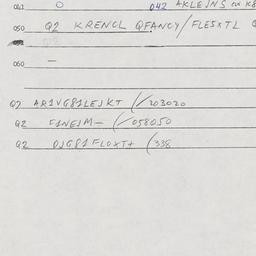 041 0 042 AKLEJNS
050 Q2 KRENCL QFANCY/FLE5XTL Q
060 —
Q2 AR1VG81LEJKT (/203020
Q2 C1NEJM— (/058050
Q2 DJG81FLOXT+ (338